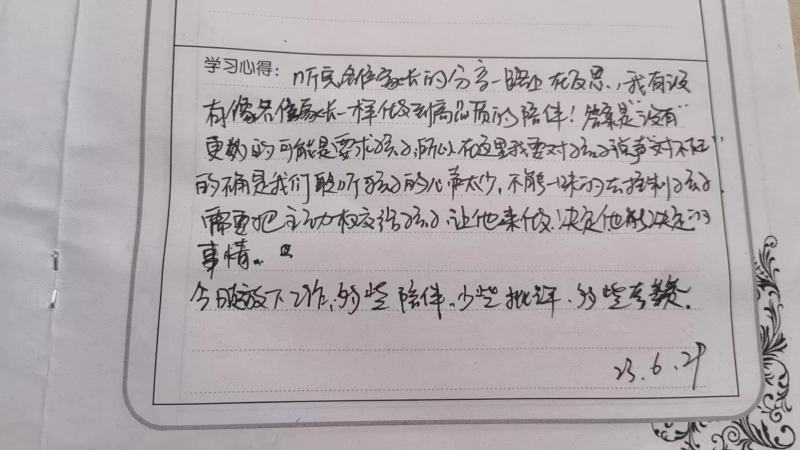 学习心得：听完各位家长的分享一路上在反思，我有没
有像各位家长一样做到高品质的陪伴！答案是"没有"
更多的可能是要求孩子，所以在这里我要对孩子说声"对不起"
的确是我们聆听孩子的心声太少，不能一味的去控制孩子，
需要把主动权交给孩子，让他来做决定他能决定的
事情。
今日放下工作，多些陪伴。少些批评，多些夸赞。
23.6.29